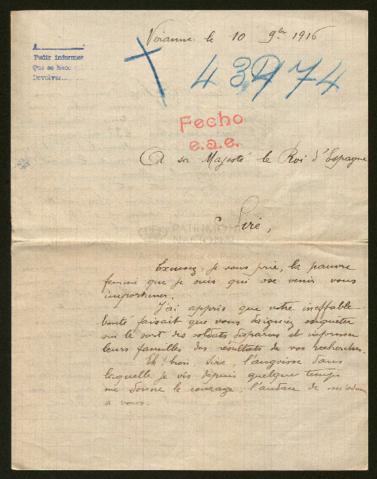 A
Pedir informes
Que se hace
Devolver
Voiennes le 10 9bre 1916
43974
Fecho
e.a.e.
A sa Majesté le Roi d'Espagne
Sire,
Excusez je vous prie, la pauvre
femme que je suis qui ose venir vous
importuner.
J'ai appris que votre ineffable
bonté faisait que vous daigniez enquêter
sur le sort des soldats disparus et informer
leurs familles des résultats de vos recherches.
Eh! bien, Sire, l'angoisse dans
laquelle je vis depuis quelque temps
me donne le courage, l'audace de m'adresser
à vous.